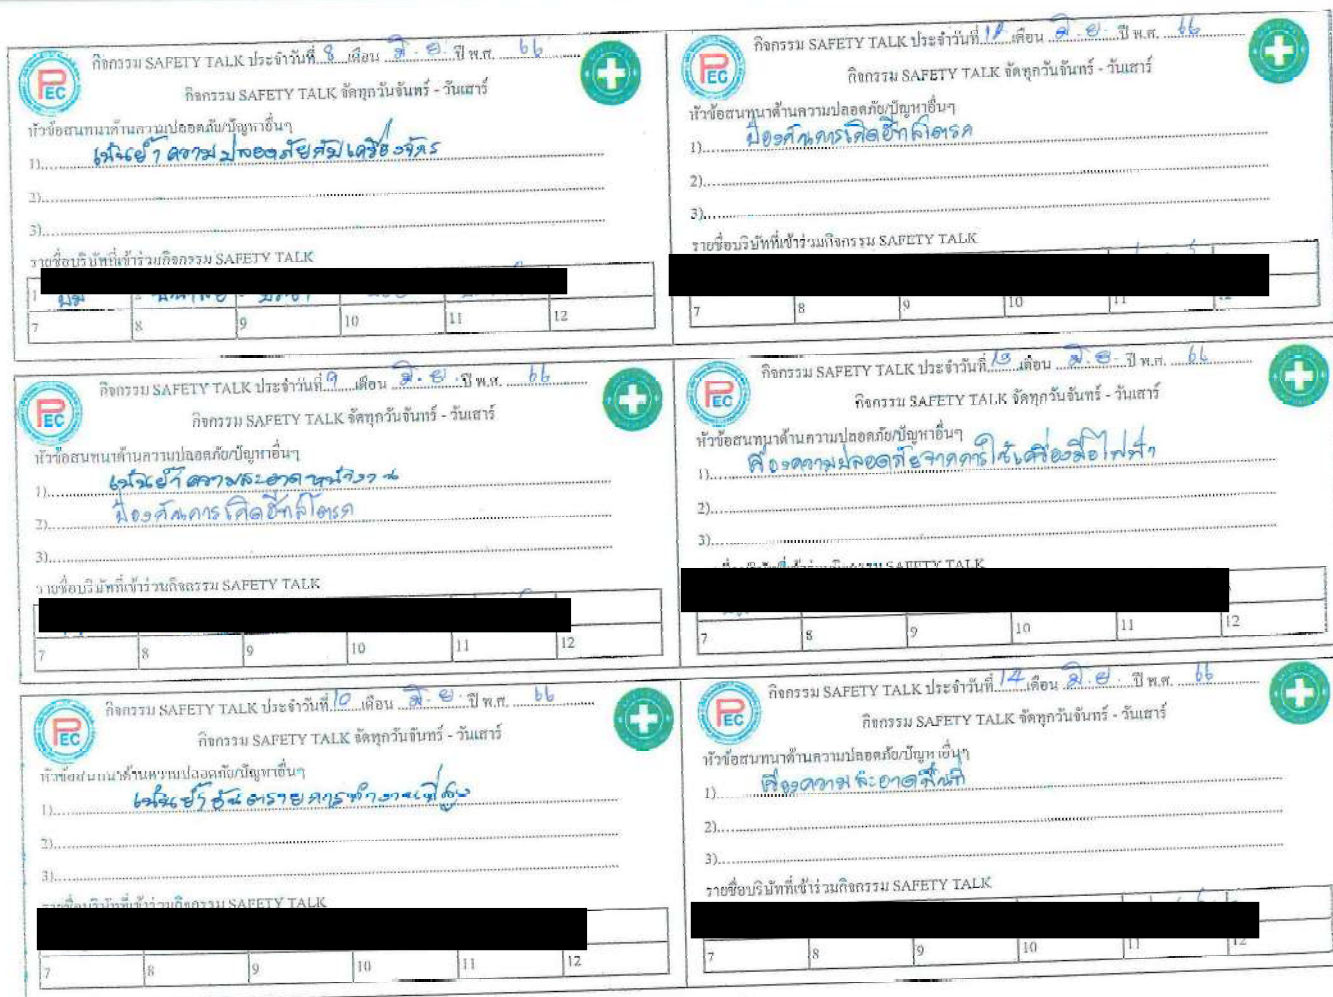 PEC
กิจกรรม SAFETY TALK ประจำวันที่ 8 เดือน มิ.ย. ปี พ.ศ. 66
กิจกรรม SAFETY TALK จัดทุกวันจันทร์ - วันเสาร์
หัวข้อสนทนาด้านความปลอดภัย/ปัญหาอื่นๆ
1) เน้นย้ำความปลอดภัยกับเครื่องจักร
2)
3)
รายชื่อบริษัทที่เข้าร่วมกิจกรรม SAFETY TALK
1
7 8 9 10 11 12
PEC
กิจกรรม SAFETY TALK ประจำวันที่ เดือน มิ.ย. ปี พ.ศ. 66
กิจกรรม SAFETY TALK จัดทุกวันจันทร์ - วันเสาร์
หัวข้อสนทนาด้านความปลอดภัย/ปัญหาอื่นๆ
1) ป้องกันการเกิดฮีทสโตรค
2)
3)
รายชื่อบริษัทที่เข้าร่วมกิจกรรม SAFETY TALK
7 8 9 10 11 12
PEC
กิจกรรม SAFETY TALK ประจำวันที่ 9 เดือน มิ.ย. ปี พ.ศ. 66
กิจกรรม SAFETY TALK จัดทุกวันจันทร์ - วันเสาร์
หัวข้อสนทนาด้านความปลอดภัย/ปัญหาอื่นๆ
1) เน้นย้ำความสะอาดหน้างาน
2) ป้องกันการเกิดฮีทสโตรค
3)
รายชื่อบริษัทที่เข้าร่วมกิจกรรม SAFETY TALK
7 8 9 10 11 12
PEC
กิจกรรม SAFETY TALK ประจำวันที่ 13 เดือน มิ.ย. ปี พ.ศ. 66
กิจกรรม SAFETY TALK จัดทุกวันจันทร์ - วันเสาร์
หัวข้อสนทนาด้านความปลอดภัย/ปัญหาอื่นๆ
1) เรื่องความปลอดภัยจากการใช้เครื่องมือไฟฟ้า
2)
3)
SAFETY TALK
7 8 9 10 11 12
PEC
กิจกรรม SAFETY TALK ประจำวันที่ 10 เดือน มิ.ย. ปี พ.ศ. 66
กิจกรรม SAFETY TALK จัดทุกวันจันทร์ - วันเสาร์
หัวข้อสนทนาด้านความปลอดภัย/ปัญหาอื่นๆ
1) เน้นย้ำอันตรายการทำงานที่สูง
2)
3)
รายชื่อบริษัทที่เข้าร่วมกิจกรรม SAFETY TALK
7 8 9 10 11 12
PEC
กิจกรรม SAFETY TALK ประจำวันที่ 14 เดือน มิ.ย. ปี พ.ศ. 66
กิจกรรม SAFETY TALK จัดทุกวันจันทร์ - วันเสาร์
หัวข้อสนทนาด้านความปลอดภัย/ปัญหาอื่นๆ
1) เรื่องความสะอาดพื้นที่
2)
3)
รายชื่อบริษัทที่เข้าร่วมกิจกรรม SAFETY TALK
7 8 9 10 11 12